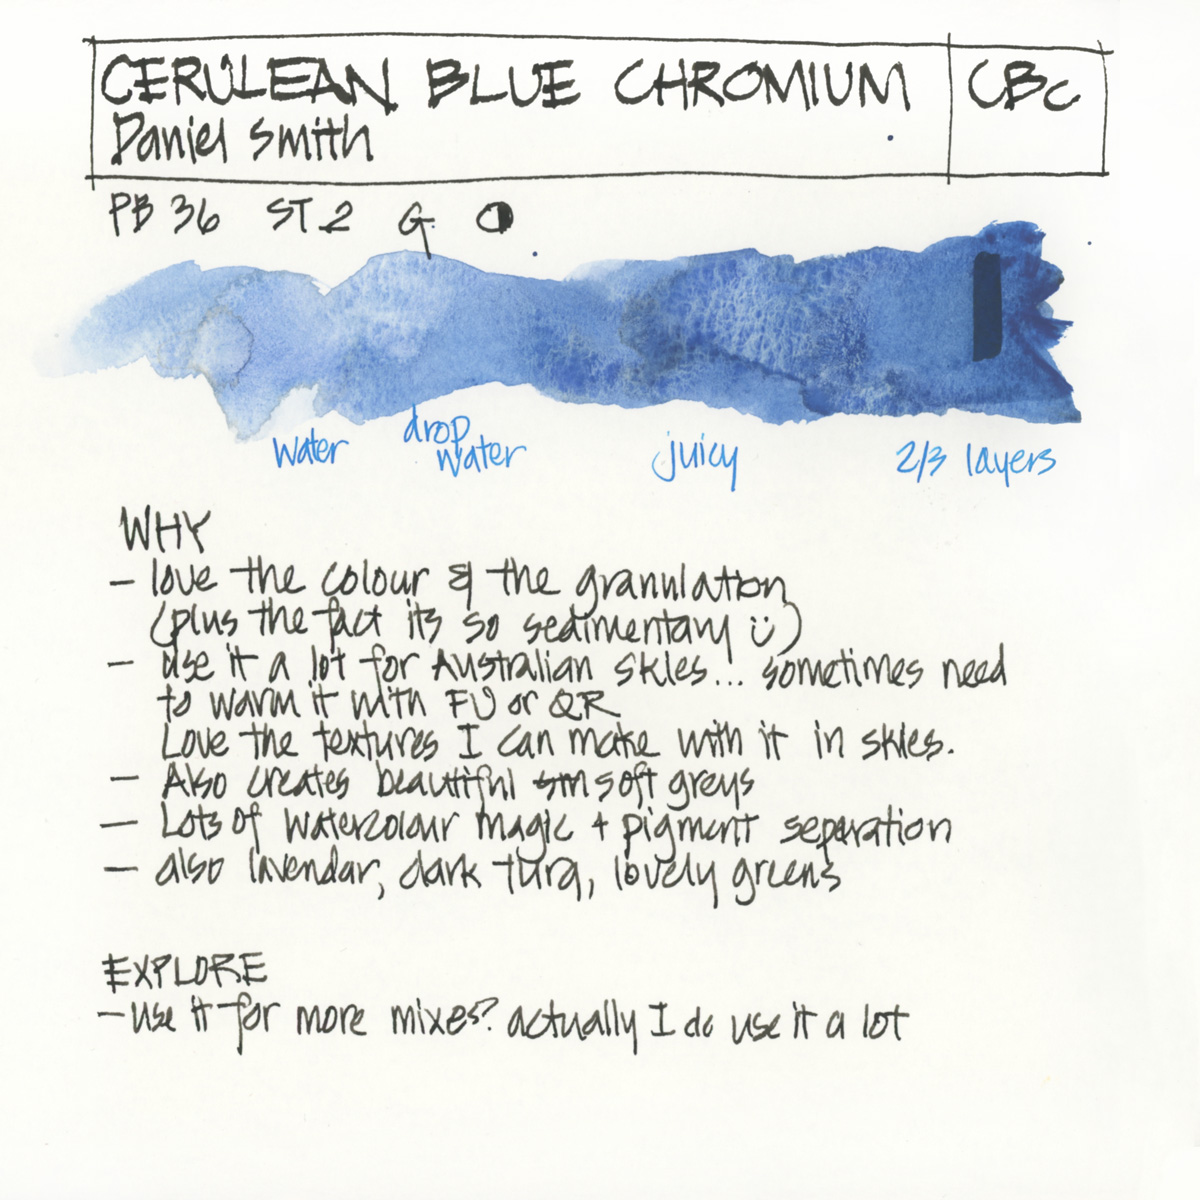 CERULEAN BLUE CHROMIUM CBc
Daniel Smith
PB 36 ST 2 G
water drop water juicy 2/3 layers
WHY
- love the colour & the granulation
(plus the fact its so sedimentary ü)
- use it a lot for Australian skies... sometimes need
to warm it with FU or QR
Love the textures I can make with it in skies.
- Also creates beautiful sm soft greys
- Lots of watercolour magic + pigment separation
- also lavendar, dark turq, lovely greens
EXPLORE
- use it for more mixes? actually I do use it a lot